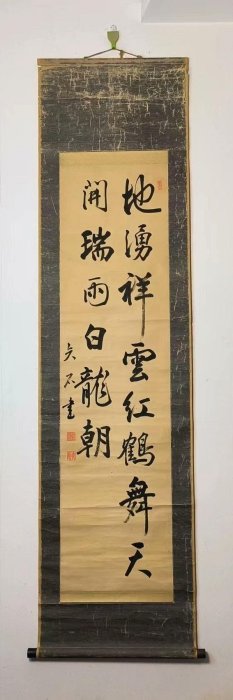 地湧祥雲紅鶴舞天
開瑞雨白龍朝
矢石書